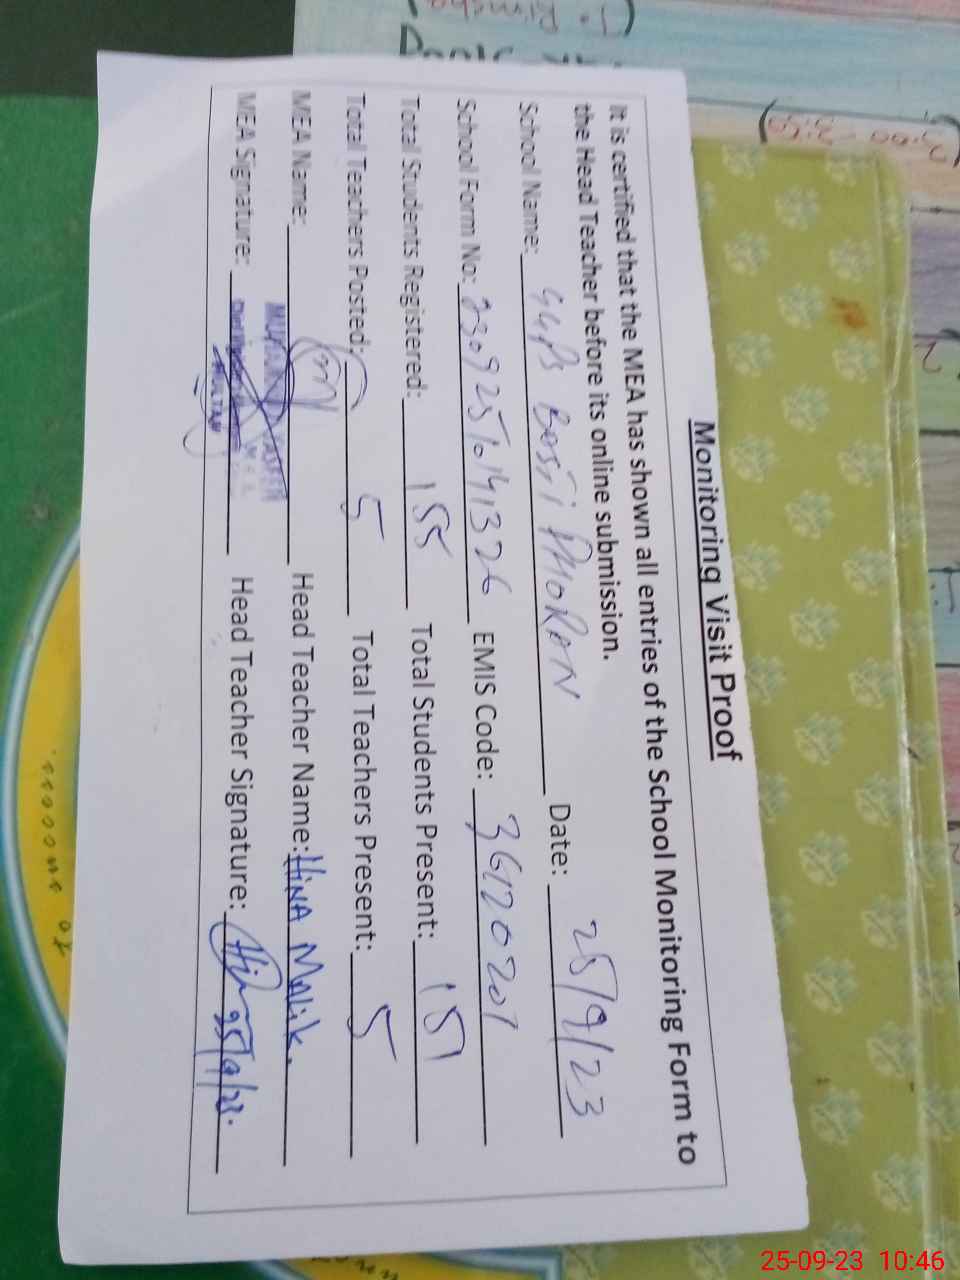 Monitoring Visit Proof
It is certified that the MEA has shown all entries of the School Monitoring Form to
the Head Teacher before its online submission.
School Name: BOSTi PHORAN Date: 25/9/23
School Form No: EMIS Code: 36120201
Total Students Registered: 155 Total Students Present: 151
Total Teachers Posted: 5 Total Teachers Present: 5
MEA Name: Head Teacher Name: HiNA MALik.
MEA Signature: MULTAN Head Teacher Signature: 25/9/23.
25-09-23 10:46